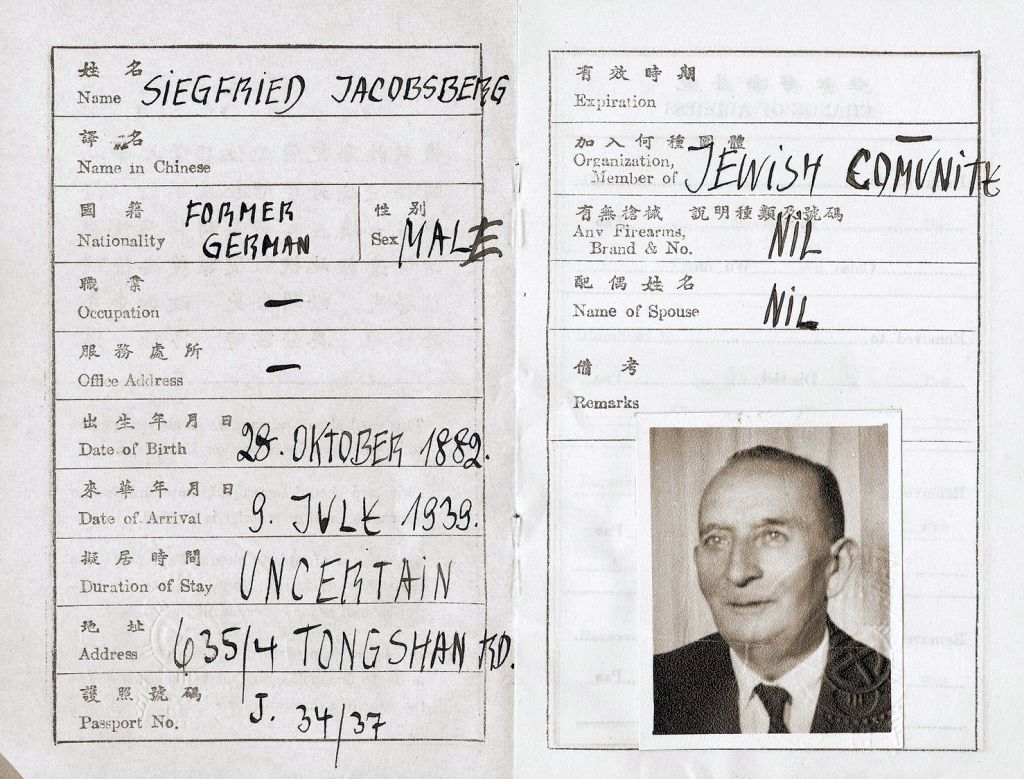 姓名
Name SIEGFRIED JACOBSBERG
譯名
Name in Chinese
國籍 FORMER
Nationality GERMAN
性別
Sex MALE
職業
Occupation —
服務處所
Office Address —
出生年月日
Date of Birth 28. OKTOBER 1882.
來華年月日
Date of Arrival 9. JULY 1939.
擬居時間
Duration of Stay UNCERTAIN
地址
Address 635/4 TONGSHAN RD.
護照號碼
Passport No. J. 34/37
有效時期
Expiration
加入何種團體 —
Organization,
Member of JEWISH COMUNITY
有無槍械 說明種類及號碼
Any Firearms,
Brand & No. NIL
配偶姓名
Name of Spouse NIL
備考
Remarks